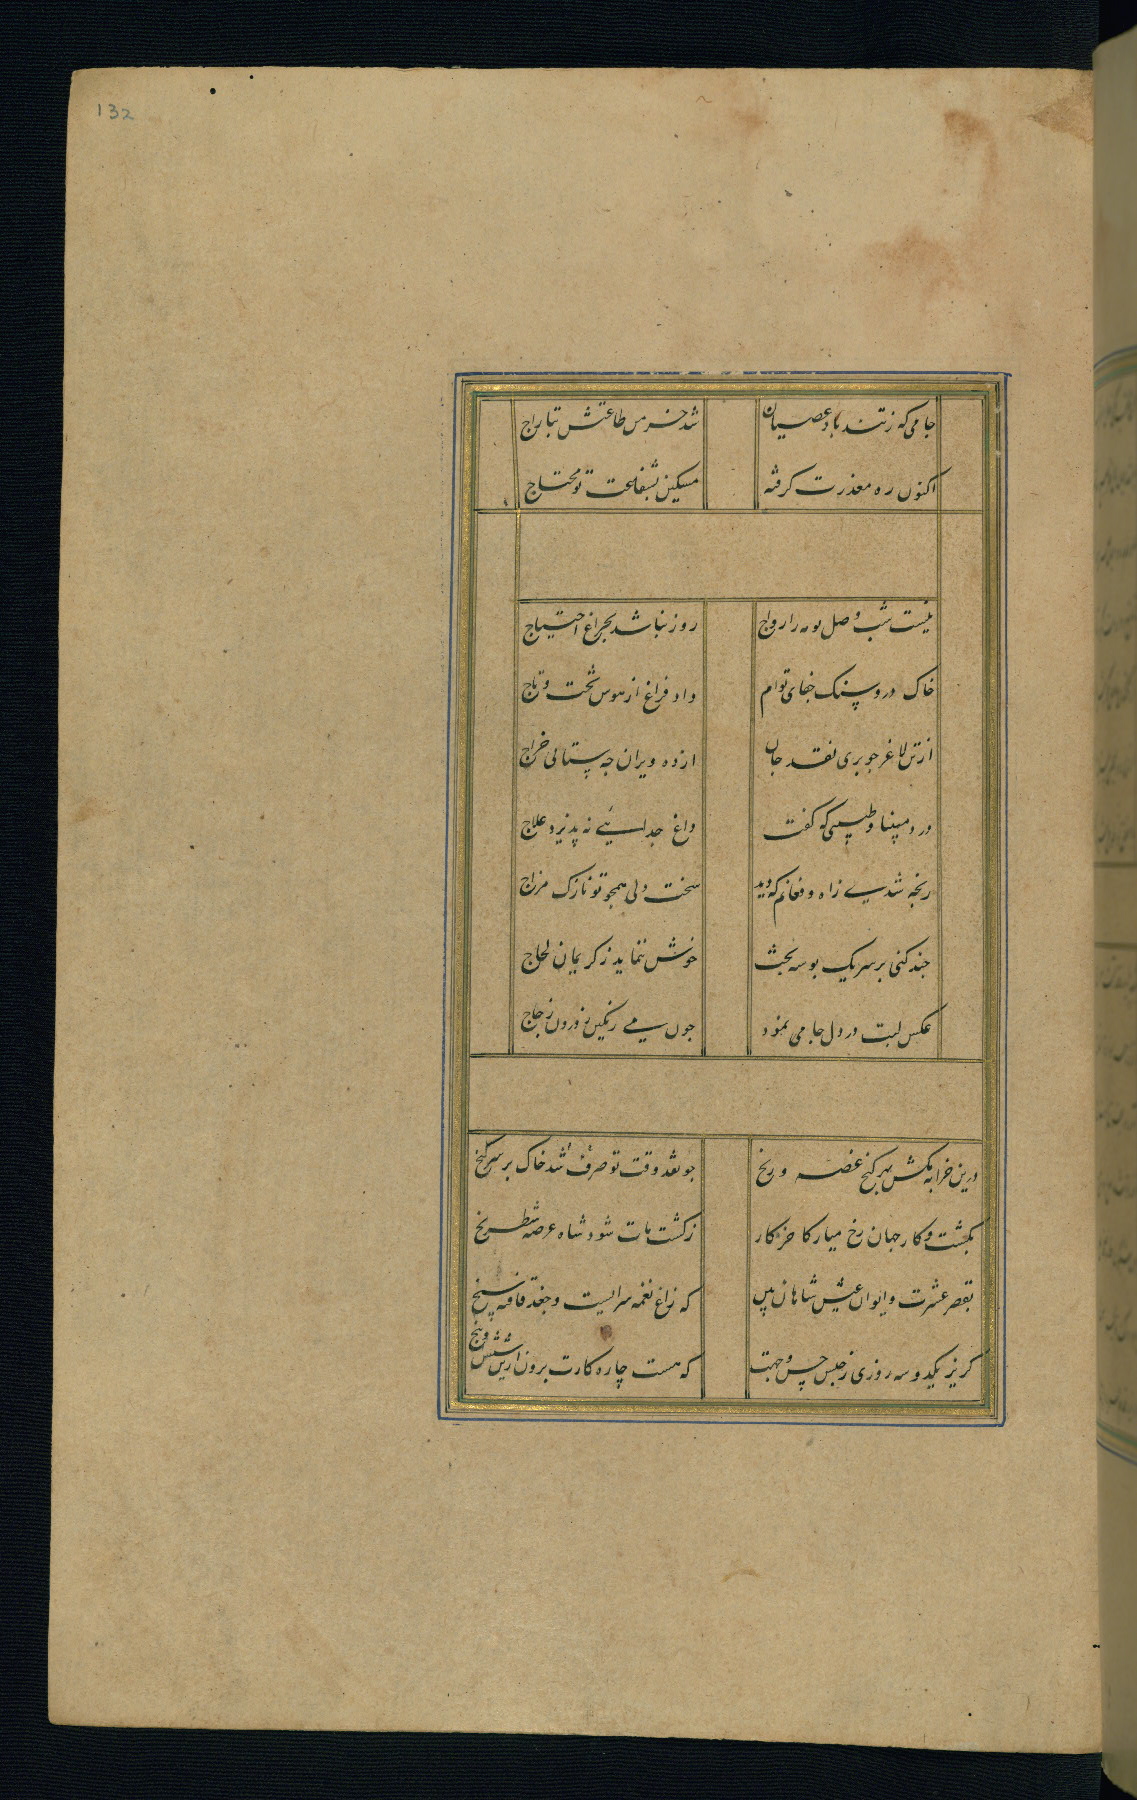 132
جامی که ز تند باد عصیان
شد خرمن طاعتش بتاراج
اکنون ره معذرت کرفته
مسکین بشفاعت تو محتاج
نیست شب وصل تو مه را رواج
روز نباشد بچراغ احتیاج
خاک در و سنک جفای توام
داد فراغ از هوس تخت و تاج
از تن لاغر جو بری نقد جان
از ده ویران جه ستانی خراج
درد مپنا و طبیبی که کفت
داغ جدایی نه پذیرد علاج
رنجه شدی ز اه و فغانم که دید
سخت دلی همجو تو نازک مزاج
جند کنی بر سر یک بوسه بحث
خوش ننماید ز کریمان لجاج
عکس لبت در دل جامی نمود
جون می رنکین ز درون زجاج
درین خرابه مکش بهر کنج غصه و رنج
جو نقد وقت تو صرف شد خاک بر سر کنج
بکشت و کار جهان رخ میار کاخر کار
ز کشت مات شود شاه عرصه شطرنج
بقصر عشرت و ایوان عیش شاهان بین
که زاغ نغمه سرایست و جغد قافیه سنج
کریز یکدو سه روزی ز حبس حس و جهت
که هست چاره کارت برون ازین شش و پنج